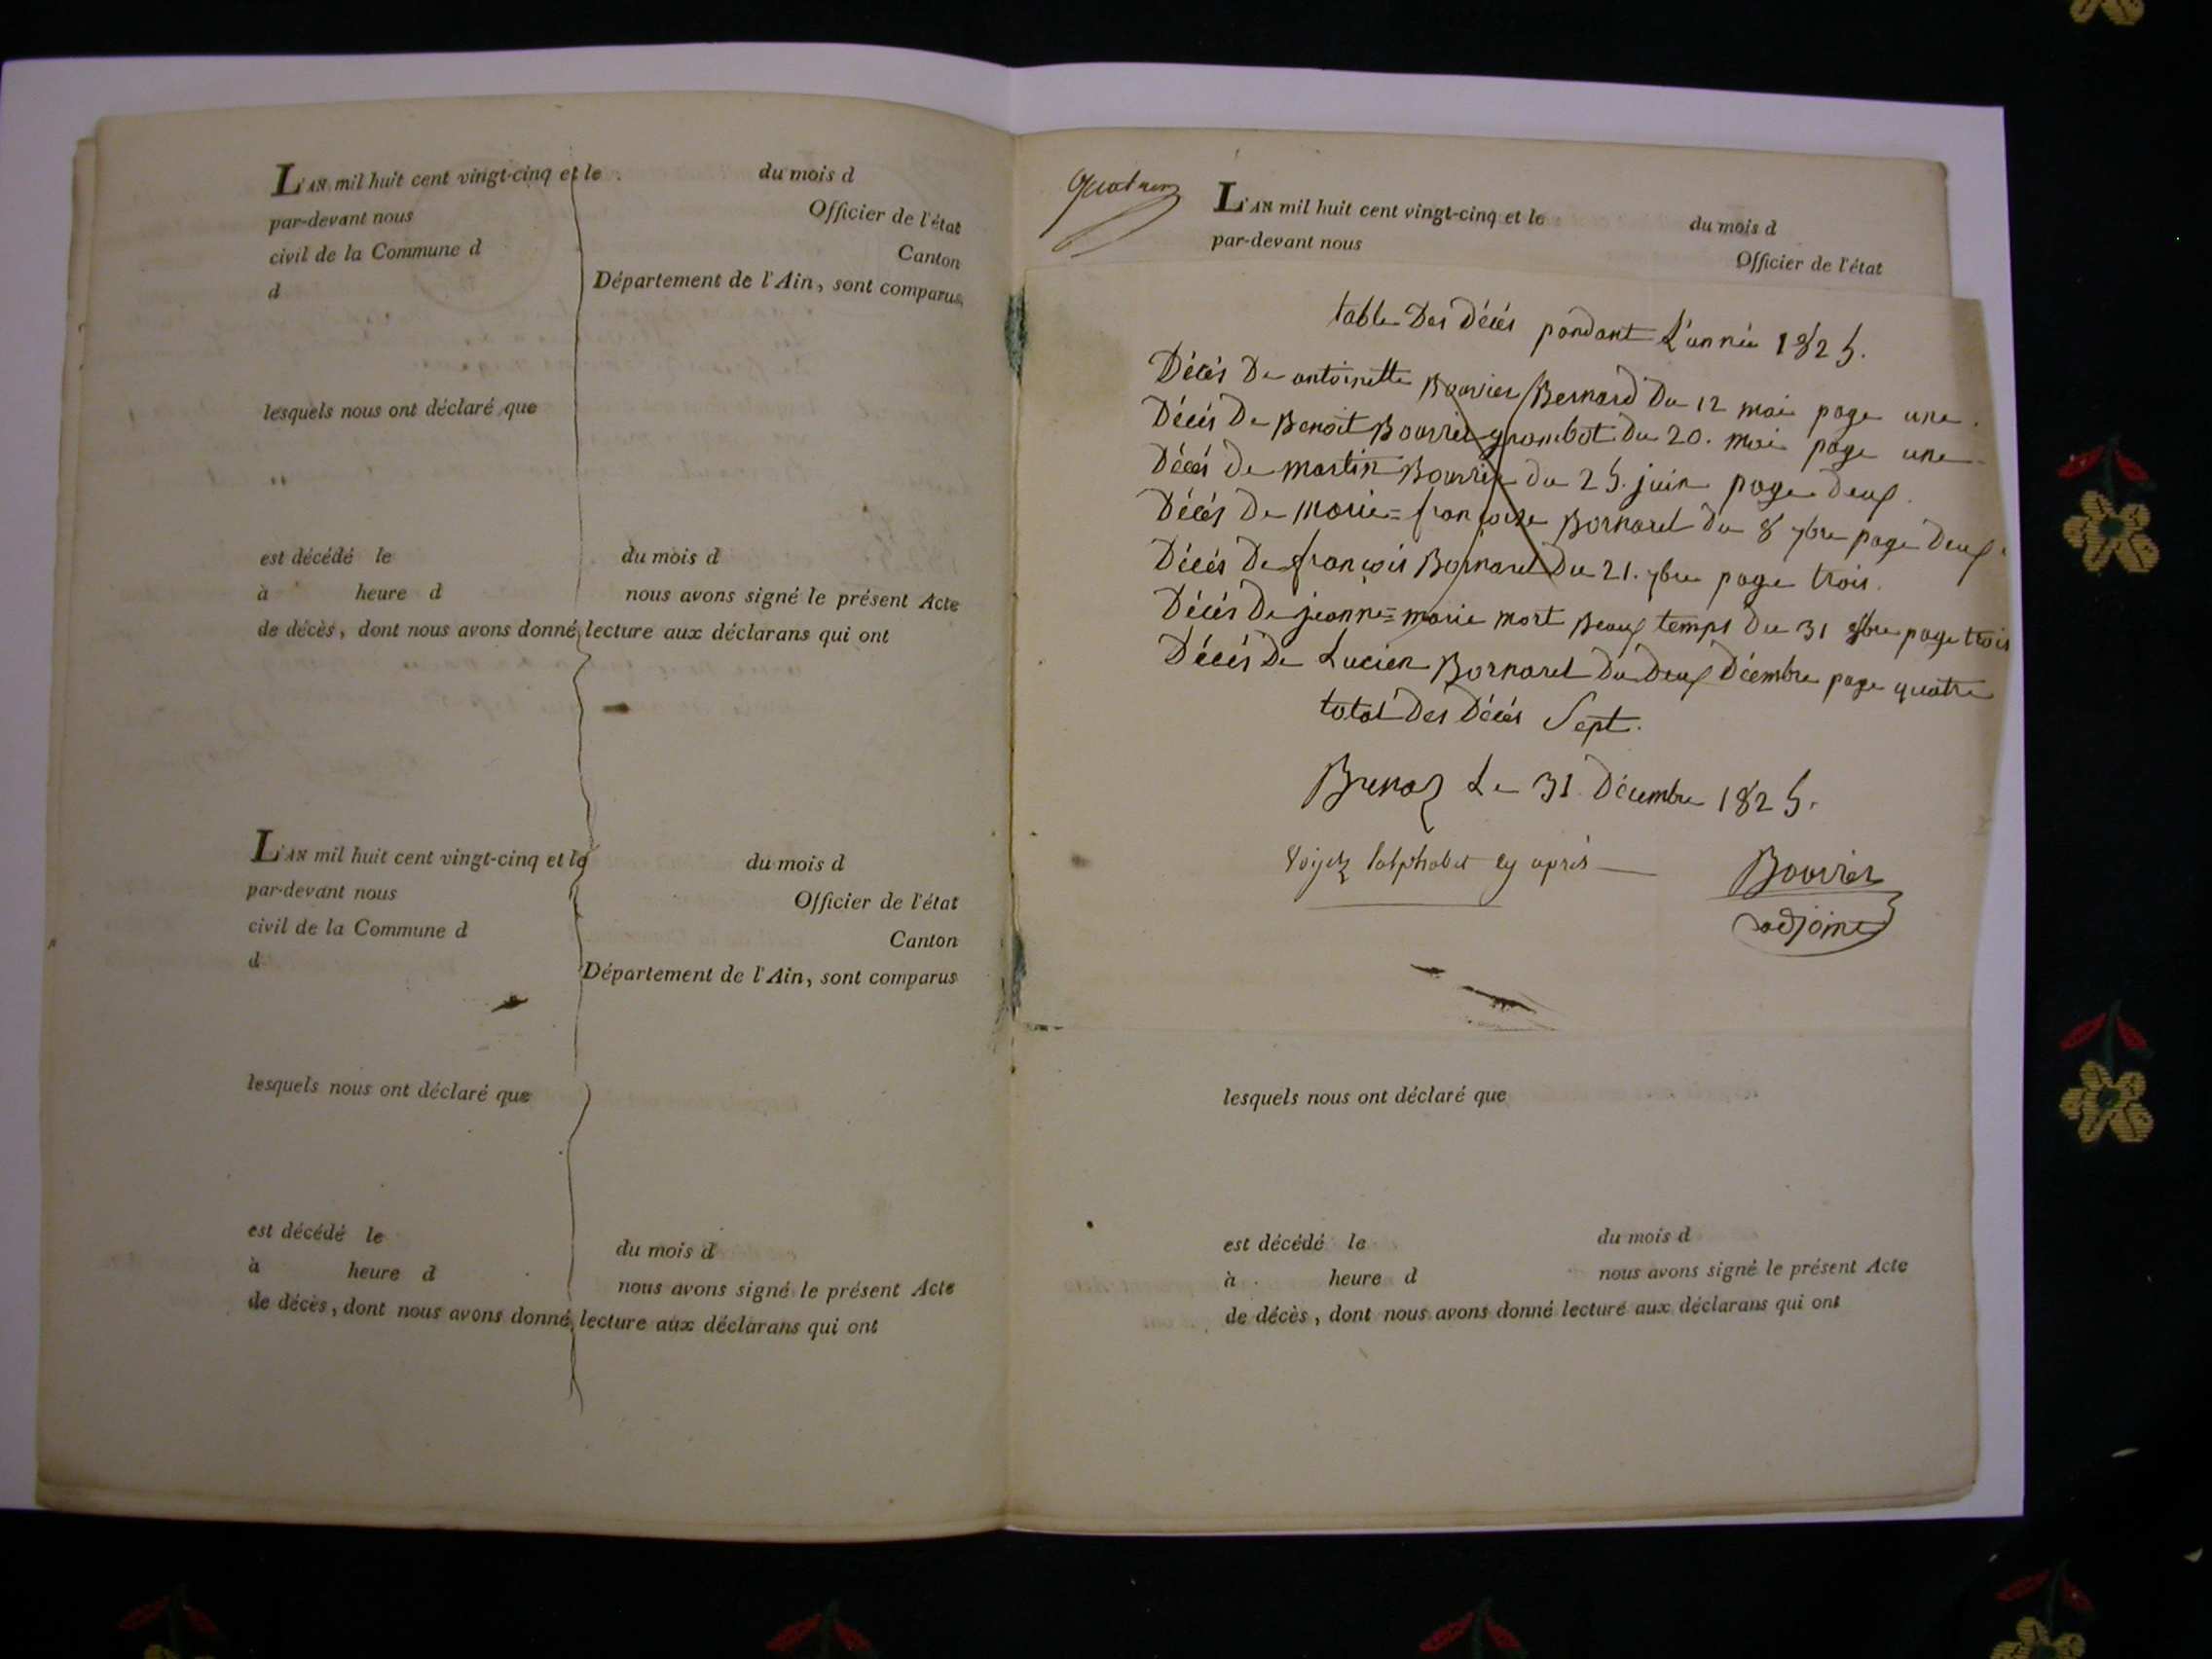 L'AN mil huit cent vingt-cinq et le du mois d
par-devant nous Officier de l'état
civil de la Commune d Canton
d Département de l'Ain, sont comparus
lesquels nous ont déclaré que
est décédé le du mois d
à heure d nous avons signé le présent Acte
de décès, dont nous avons donné lecture aux déclarans qui ont
L'AN mil huit cent vingt-cinq et le du mois d
par-devant nous Officier de l'état
civil de la Commune d Canton
d Département de l'Ain, sont comparus
lesquels nous ont déclaré que
est décédé le du mois d
à heure d nous avons signé le présent Acte
de décès, dont nous avons donné lecture aux déclarans qui ont
L'AN mil huit cent vingt-cinq et le du mois d
par-devant nous Officier de l'état
table Des Décés pandant L'année 1825.
Décés De antoinette Bouvier Bernard Du 12 mai page une.
Décés De Benoit Bouvier grombot Du 20. mai page une
Décés de martin Bouvier du 25. juin page deux.
Décés De marie=françoise Bornarel du 8 7bre page Deux
Décés De françois Bornarel Du 21. 7bre page trois.
Décés De jeanne=marie mort Beaux temps Du 31 8bre page trois
Décés De Lucien Bornarel Du Deux Décembre page quatre
total Des Décés Sept.
Brenaz Le 31 Décembre 1825.
Voyez l'alphabet cy aprés
Bouvier
adjoint
lesquels nous ont déclaré que
est décédé le du mois d
à heure d nous avons signé le présent Acte
de décès, dont nous avons donné lecture aux déclarans qui ont